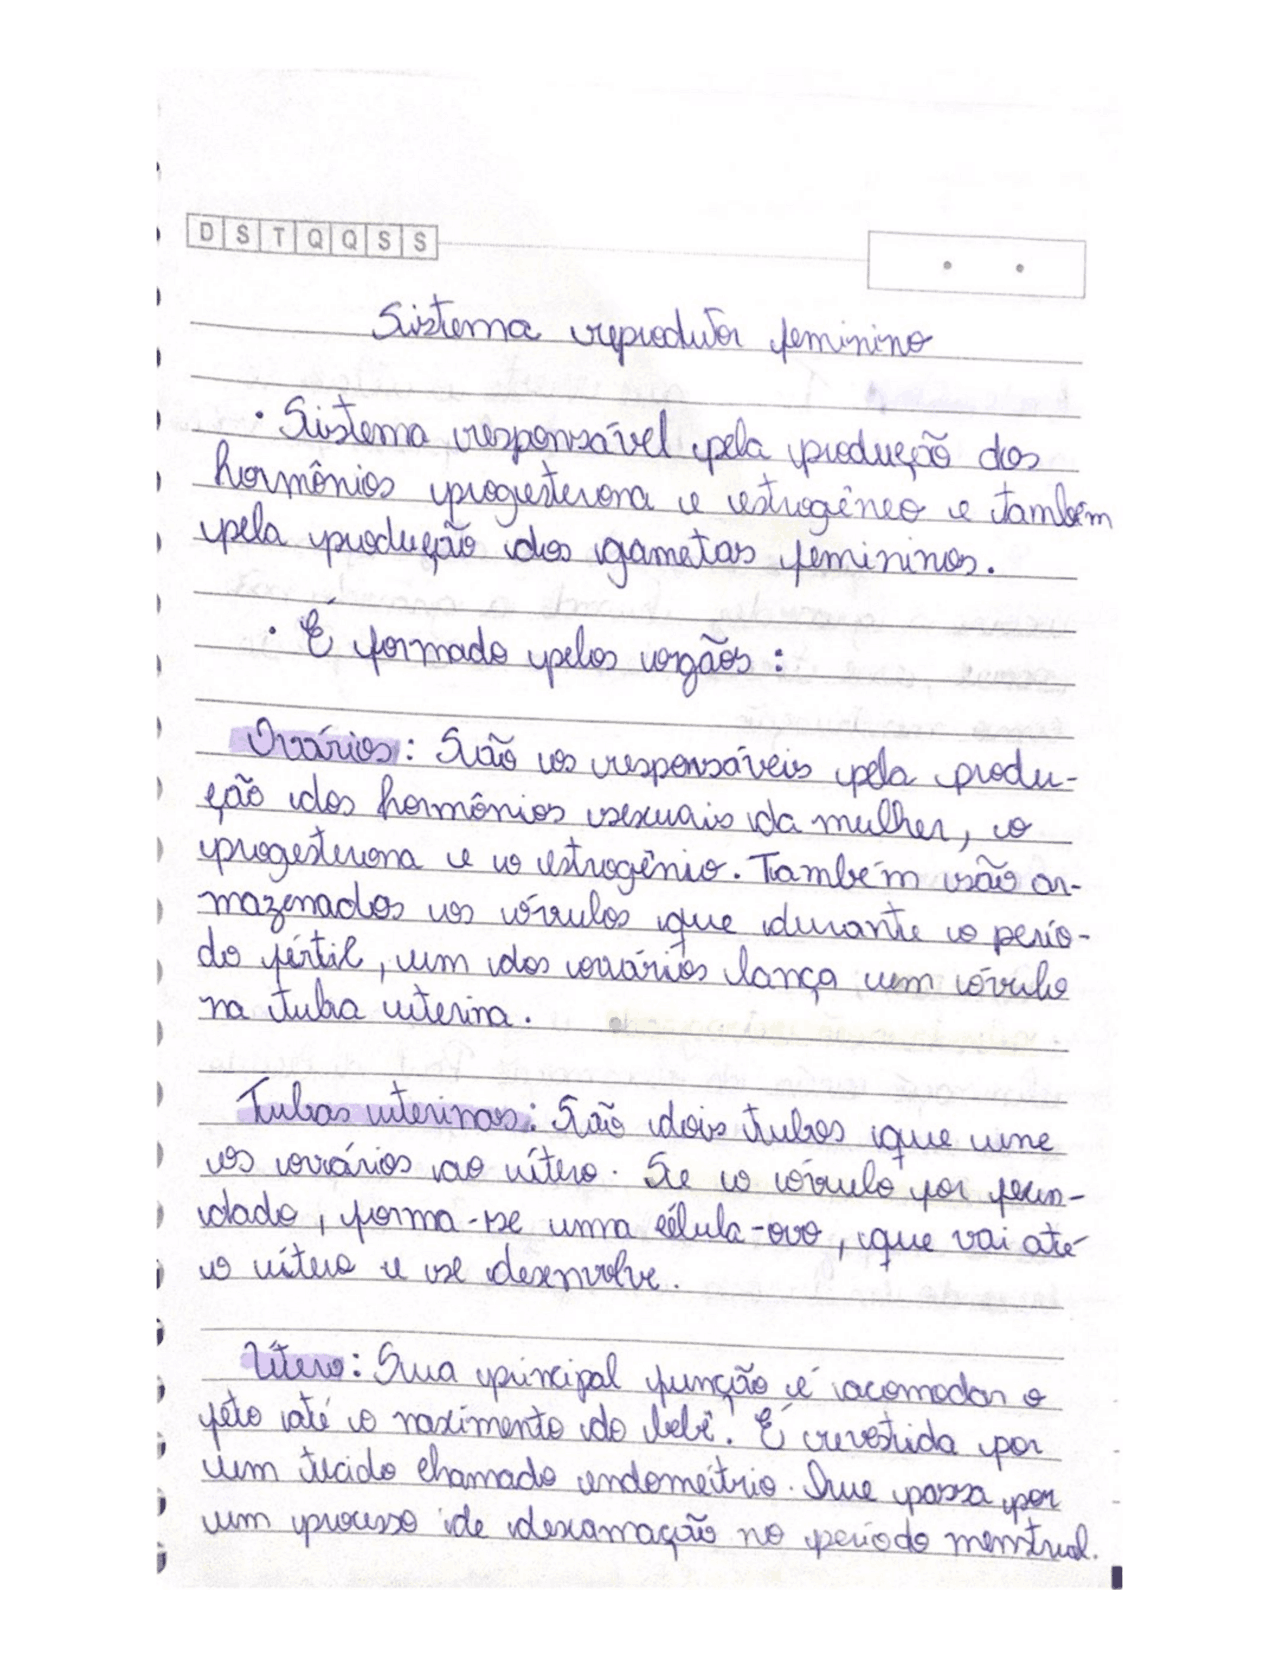 D S T Q Q S S
Sistema reprodutor feminino
• Sistema responsável pela produção dos
hormônios progesterona e estrogêneo e também
pela produção dos gametas femininos.
• É formado pelos orgãos:
Ovários: São os responsáveis pela produ-
ção dos hormônios sexuais da mulher, o
progesterona e o estrogênio. Também são ar-
mazenados os óvulos que durante o perío-
do fértil, um dos ovários lança um óvulo
na tuba uterina.
Tubas uterinas: São dois tubos que une
os ovários ao útero. Se o óvulo for fecun-
dado, forma-se uma célula-ovo, que vai até
o útero e se desenvolve.
Útero: Sua principal função é acomodar o
feto até o nascimento do bebê. É revestida por
um tecido chamado endométrio. Que passa por
um processo de descamação no período menstrual.